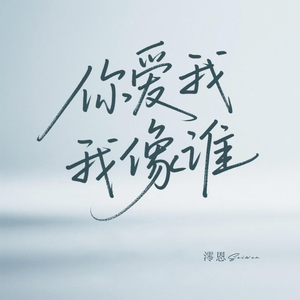 你爱我
我像谁
澪恩